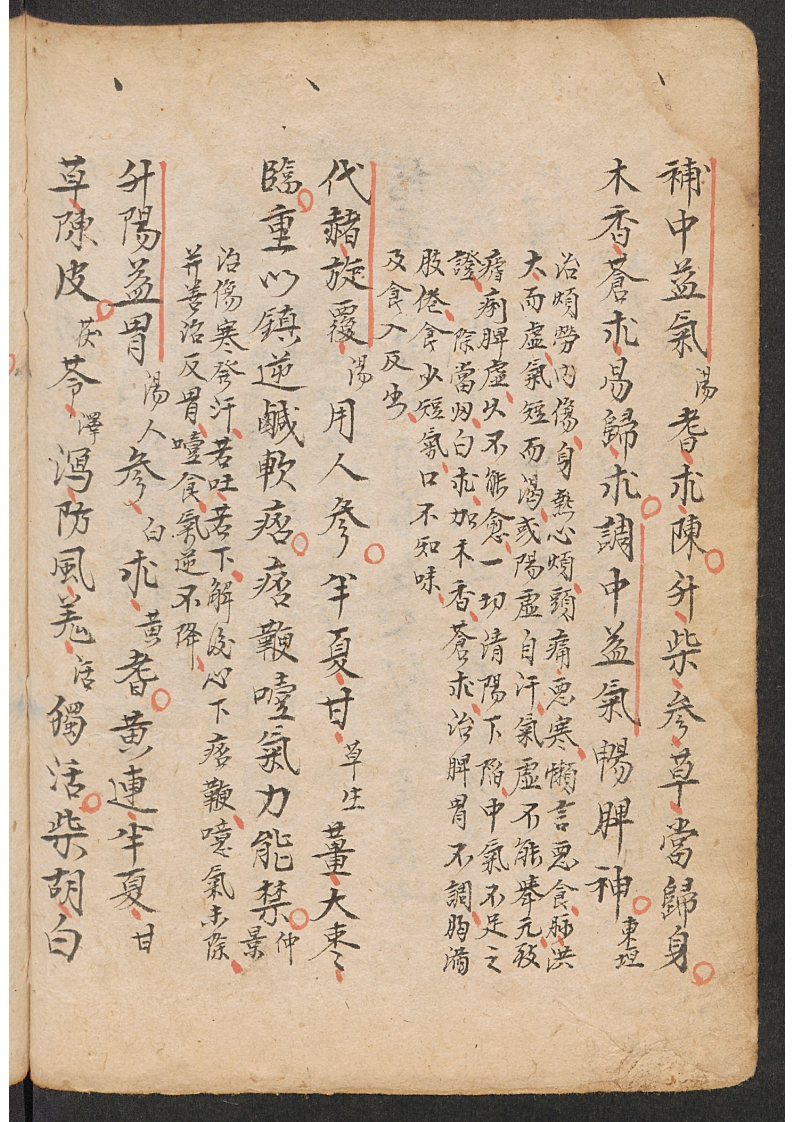 補中益氣湯耆朮陳升柴參草當歸身
木香蒼朮易歸朮調中益氣暢脾神東垣
治煩勞內傷身熱心煩頭痛惡寒懶言惡食脉洪
大而虛氣短而渴或陽虛自汗氣虛不能舉元致
瘧痢脾虛久不能愈一切清陽下陷中氣不足之
證除當歸白朮加木香蒼朮治脾胃不調胸滿
肢倦食少短氣口不知味
及食入反出
代赭旋覆湯用人參半夏甘草生薑大棗
臨重以鎮逆鹹軟痞痞鞕噫氣力能禁仲景
治傷寒發汗若吐若下解後心下痞鞕噫氣未除
并善治反胃噎食氣逆不降
升陽益胃湯人參白朮黃耆黃連半夏甘
草陳皮茯苓澤瀉防風羗活獨活柴胡白